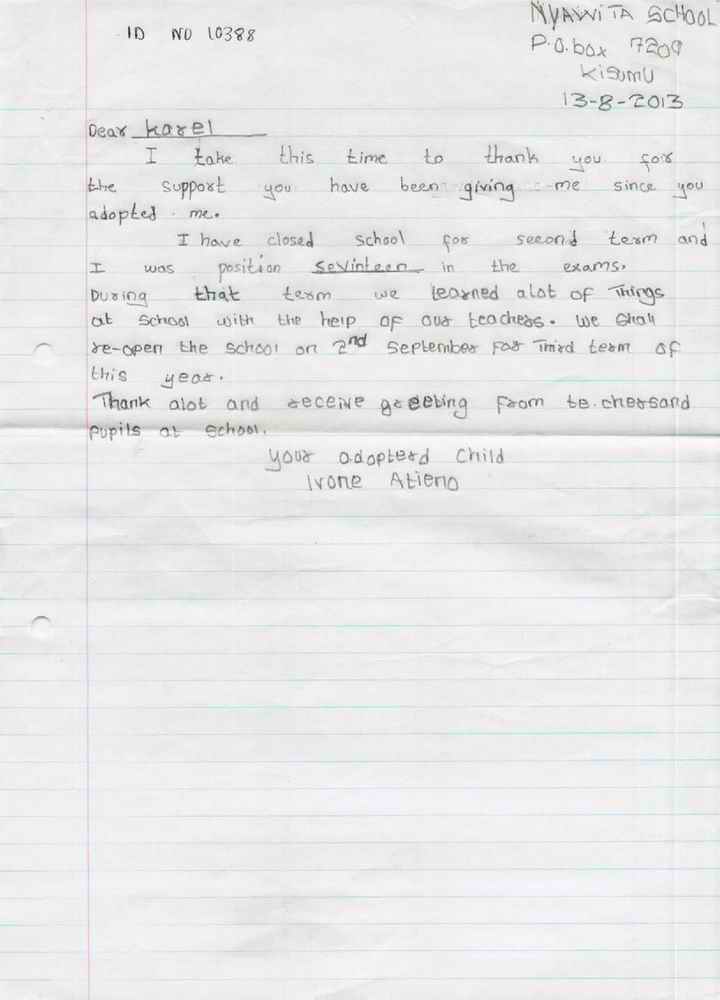 ID NO 10388
NYAWITA SCHOOL
P.O.box 7209
KISUMU
13-8-2013
Dear karel
I take this time to thank you for
the support you have been giving me since you
adopted me.
I have closed school for second term and
I was position sevinteen in the exams.
During that term we learned alot of Things
at school with the help of our teachers. We shall
re-open the school on 2nd September For Third term of
this year.
Thank alot and receive greeting from te.chersand
pupils at school.
your adopterd child
Ivone Atieno